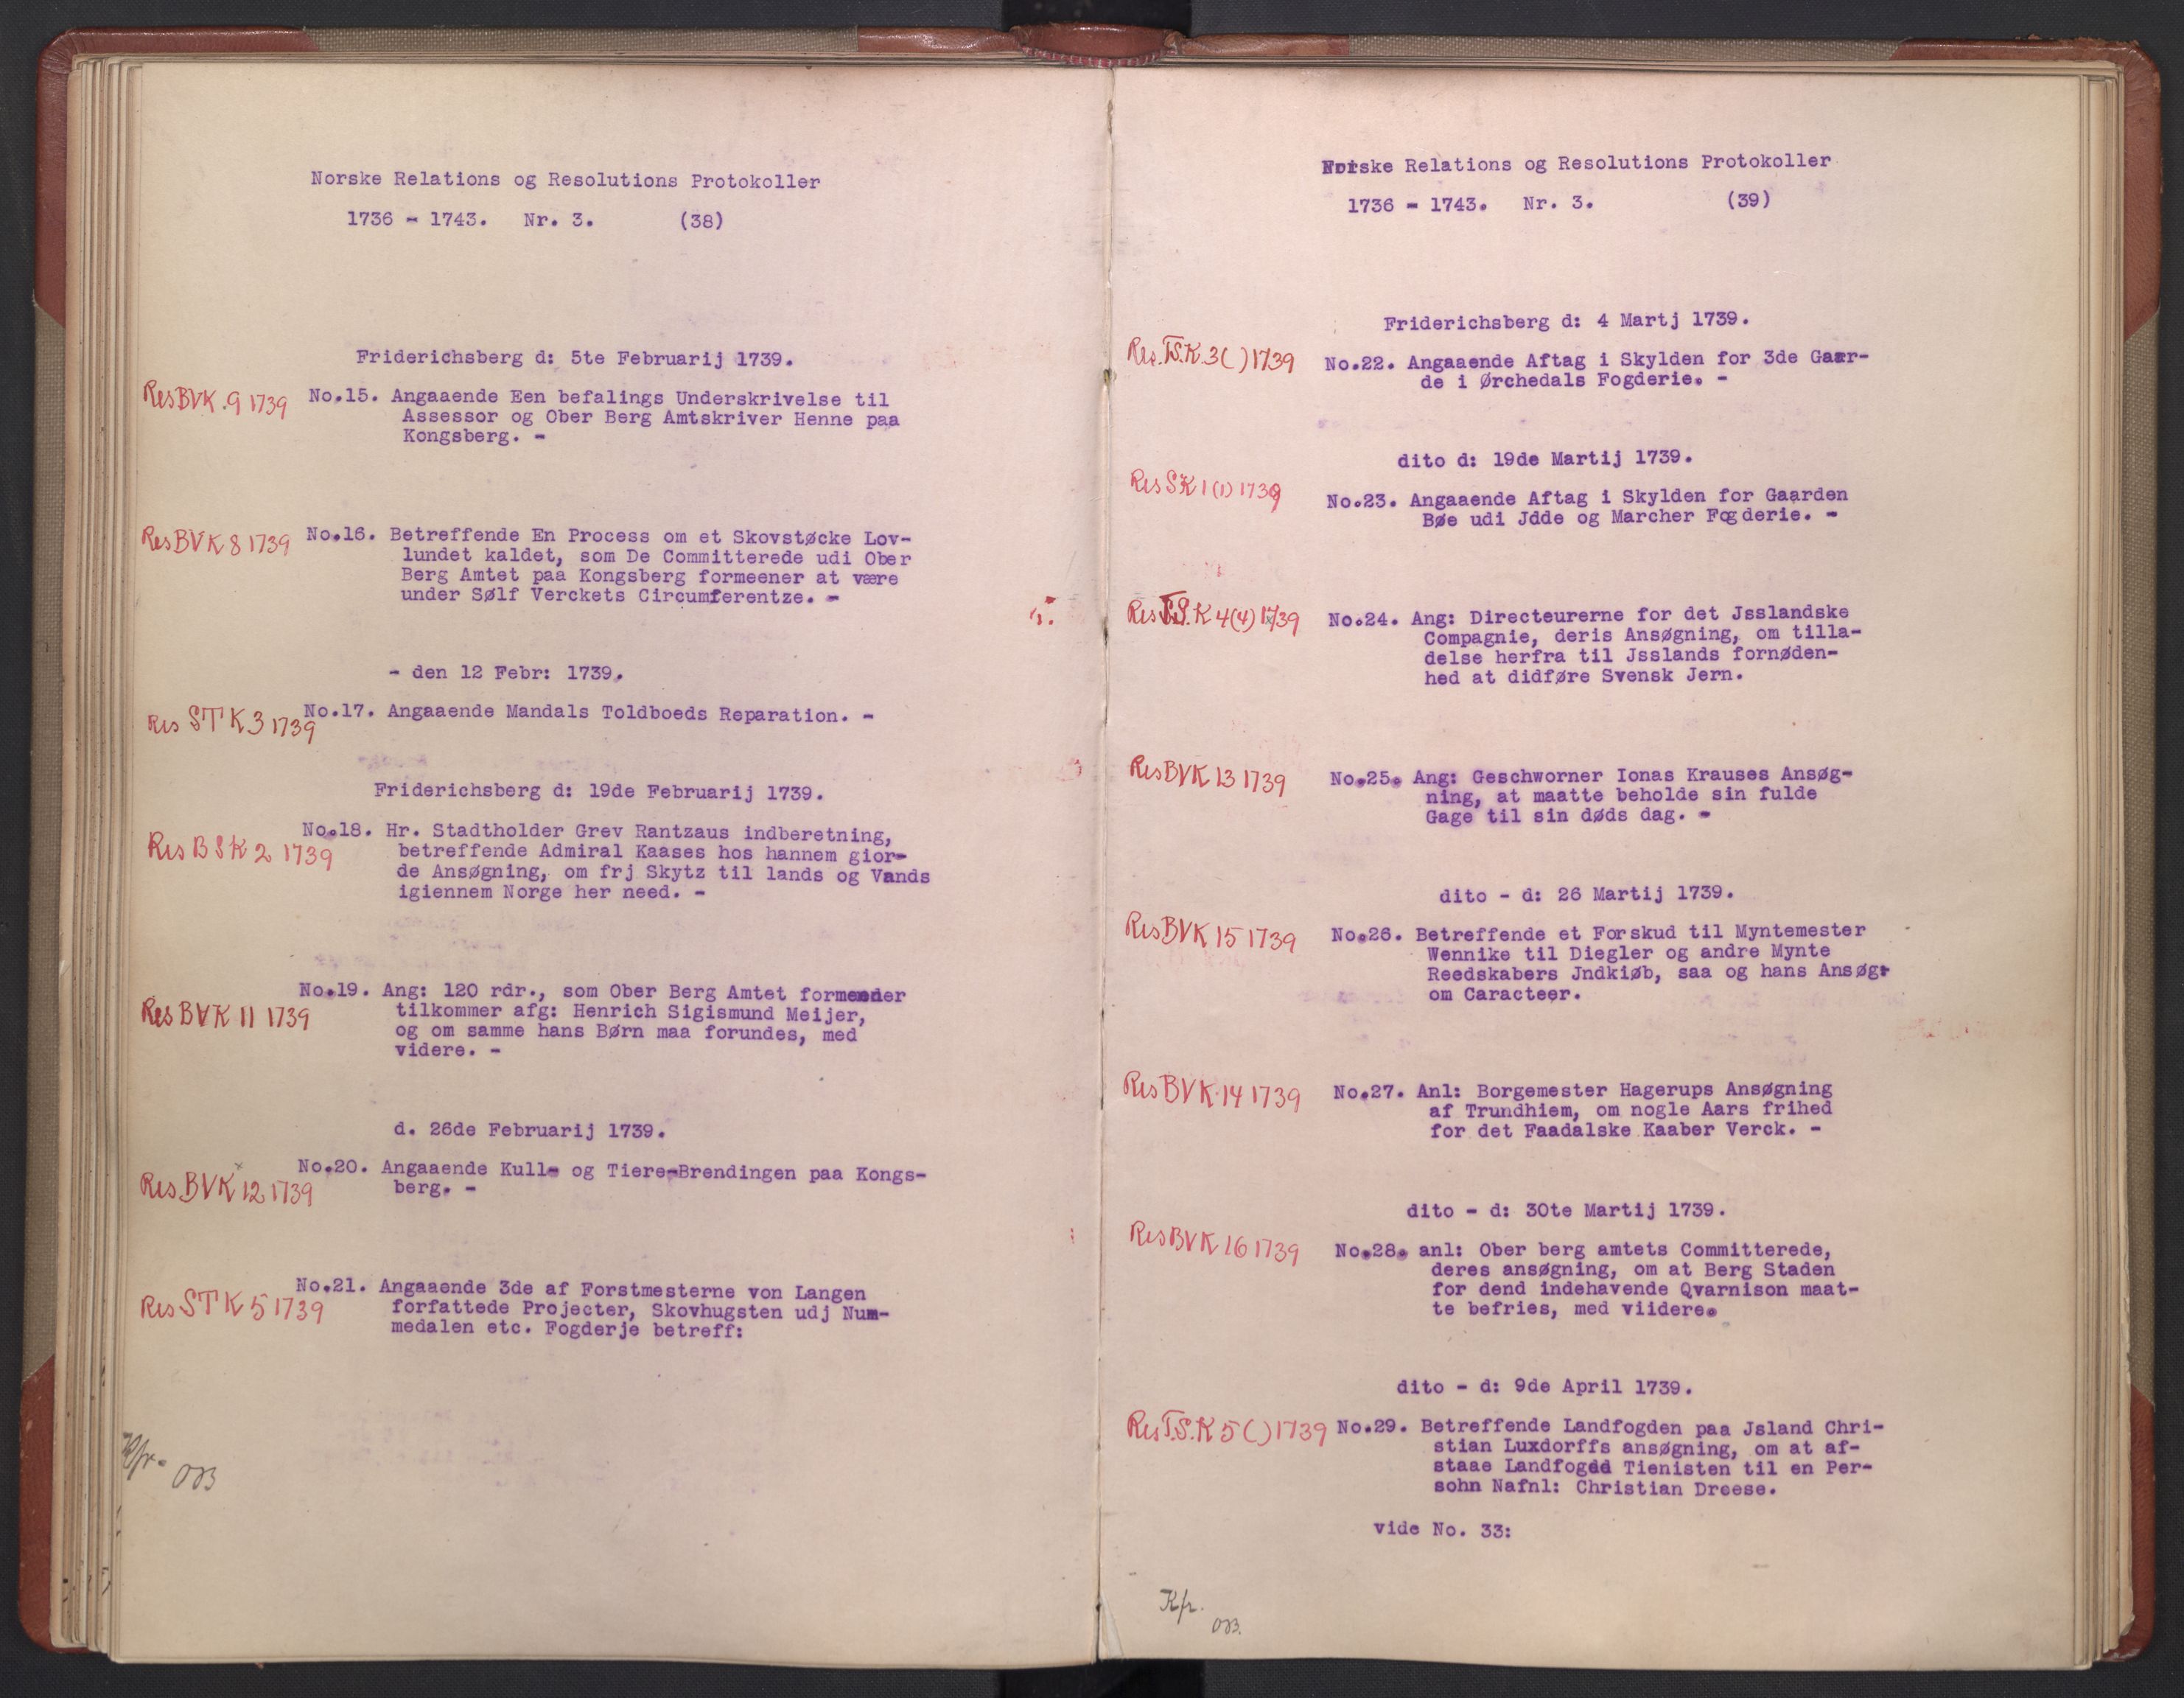 Norske Relations og Resolutions Protokoller
1736 - 1743. Nr. 3. (38)
Friderichsberg d: 5te Februarij 1739.
Res BVK. 9 1739
No.15. Angaaende Een befalings Underskrivelse til
Assessor og Ober Berg Amtskriver Henne paa
Kongsberg. -
Res BVK 8 1739
No.16. Betreffende En Process om et Skovstøcke Lov-
lundet kaldet, som De Committerede udi Ober
Berg Amtet paa Kongsberg formeener at være
under Sølf Verckets Circumferentze. -
- den 12 Febr: 1739.
Res STK 3 1739
No.17. Angaaende Mandals Toldboeds Reparation. -
Friderichsberg d: 19de Februarij 1739.
Res BSK 2 1739
No.18. Hr. Stadtholder Grev Rantzaus indberetning,
betreffende Admiral Kaases hos hannem gior-
de Ansøgning, om frj Skytz til lands og Vands
igiennem Norge her need. -
Res BVK 11 1739
No.19. Ang: 120 rdr., som Ober Berg Amtet formeener
tilkommer afg: Henrich Sigismund Meijer,
og om samme hans Børn maa forundes, med
videre. -
d. 26de Februarij 1739.
Res BVK 12 1739
No.20. Angaaende Kull- og Tiere-Brendingen paa Kongs-
berg. -
Res STK 5 1739
No.21. Angaaende 3de af Forstmesterne von Langen
forfattede Projecter, Skovhugsten udj Num-
medalen etc. Fogderje betreff:
Kfr.
Norske Relations og Resolutions Protokoller
1736 - 1743. Nr. 3. (39)
Friderichsberg d: 4 Martj 1739.
Res. T.S.K. 3 ( ) 1739
No.22. Angaaende Aftag i Skylden for 3de Gaar-
de i Ørchedals Fogderie. -
dito d: 19de Martij 1739.
Res SK 1 (1) 1739
No.23. Angaaende Aftag i Skylden for Gaarden
Bøe udi Jdde og Marcher Fogderie. -
Res T.S.K 4 (4) 1739
No.24. Ang: Directeurerne for det Jsslandske
Compagnie, deris Ansøgning, om tilla-
delse herfra til Jsslands fornøden-
hed at didføre Svensk Jern.
Res BVK 13 1739
No.25. Ang: Geschworner Ionas Krauses Ansøg-
ning, at maatte beholde sin fulde
Gage til sin døds dag. -
dito - d: 26 Martij 1739.
Res BVK 15 1739
No.26. Betreffende et Forskud til Myntemester
Wennike til Diegler og andre Mynte
Reedskabers Jndkiøb, saa og hans Ansøg:
om Caracteer.
Res BVK 14 1739
No.27. Anl: Borgemester Hagerups Ansøgning
af Trundhiem, om nogle Aars frihed
for det Faadalske Kaaber Verck. -
dito - d: 30te Martij 1739.
Res BVK 16 1739
No.28. anl: Ober berg amtets Committerede,
deres ansøgning, om at Berg Staden
for dend indehavende Qvarnison maat-
te befries, med viidere.
dito - d: 9de April 1739.
Res T.S.K 5 ( ) 1739
No.29. Betreffende Landfogden paa Jsland Chri-
stian Luxdorffs ansøgning, om at af-
staae Landfogdd Tienisten til en Per-
sohn Nafnl: Christian Dreese.
vide No. 33:
Kfr.